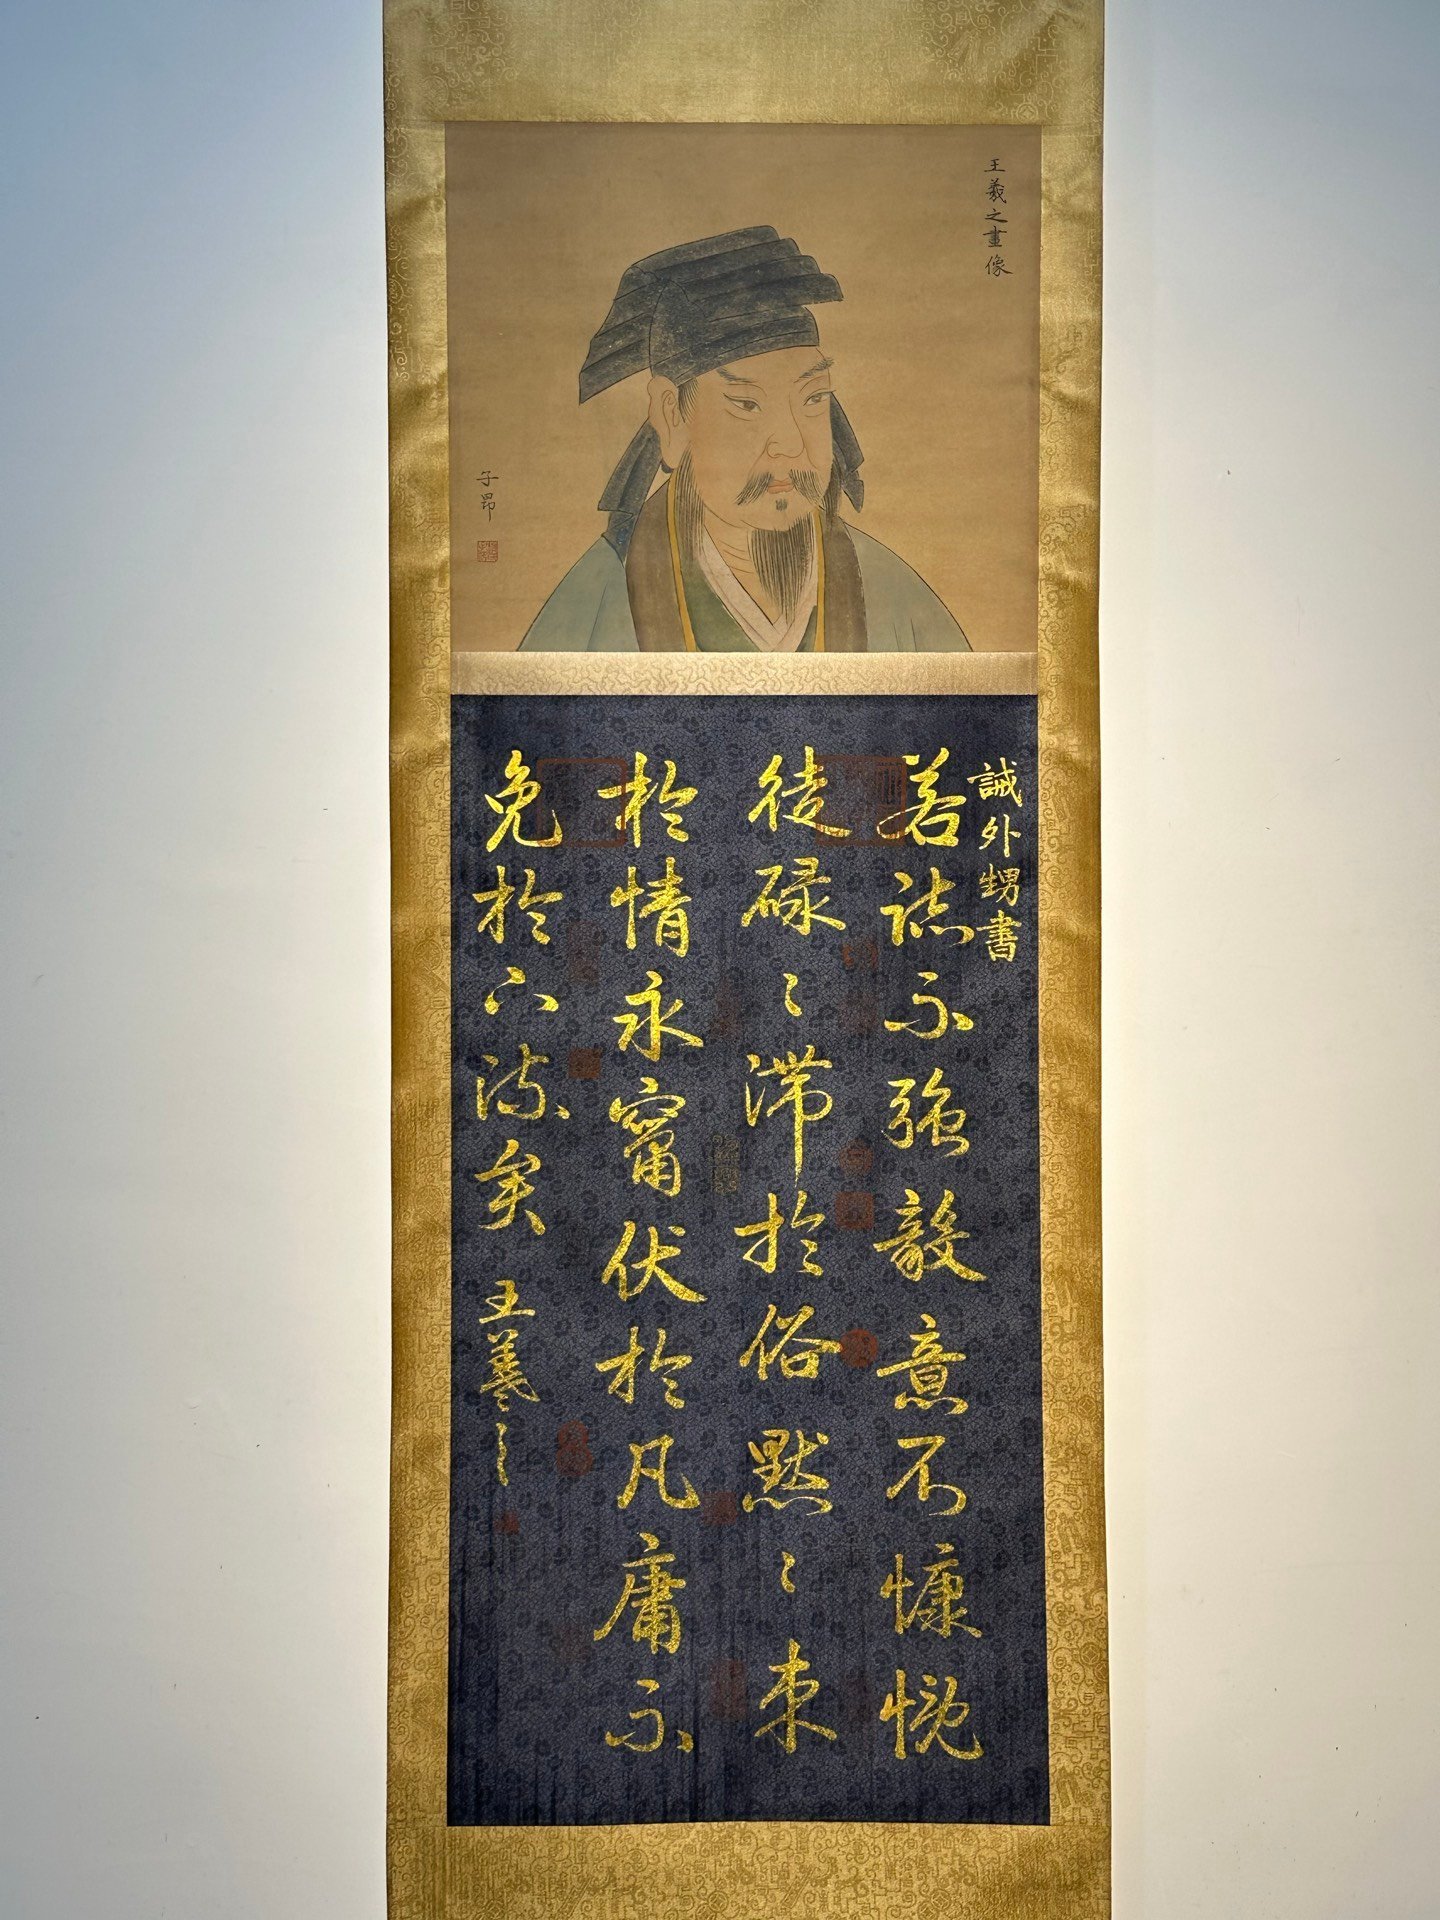 王羲之畫像
子昂
誡外甥書
若誌不強毅意不慷慨
徒碌〻滯於俗默〻束
於情永竄伏於凡庸不
免於下流矣
王羲之